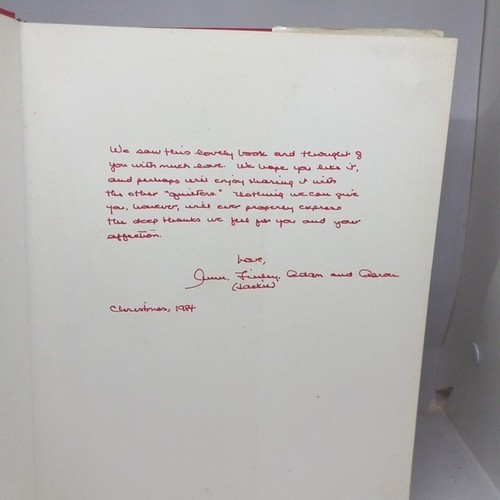 We saw this lovely book and thought of
you with much love. We hope you like it,
and perhaps will enjoy sharing it with
the other "quilters." Nothing we can give
you, however, will ever properly express
the deep thanks we feel for you and your
affection.
Love,
June, Finley, Adam and Aaron
(Jackie)
Christmas, 1984